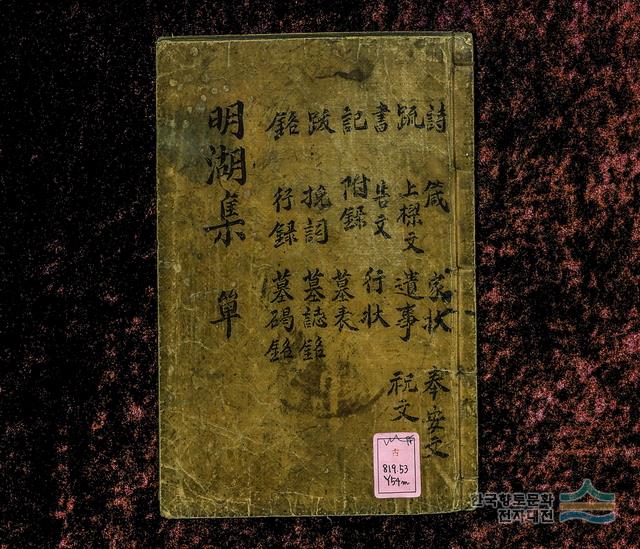 詩 箴 家狀 奉安文
疏 上樑文 遺事 祝文
書 告文 行狀
記 附錄 墓表
跋 挽詞 墓誌銘
銘 行錄 墓碣銘
明湖集 單
古
819.53
Y54m
한국향토문화
전자대전